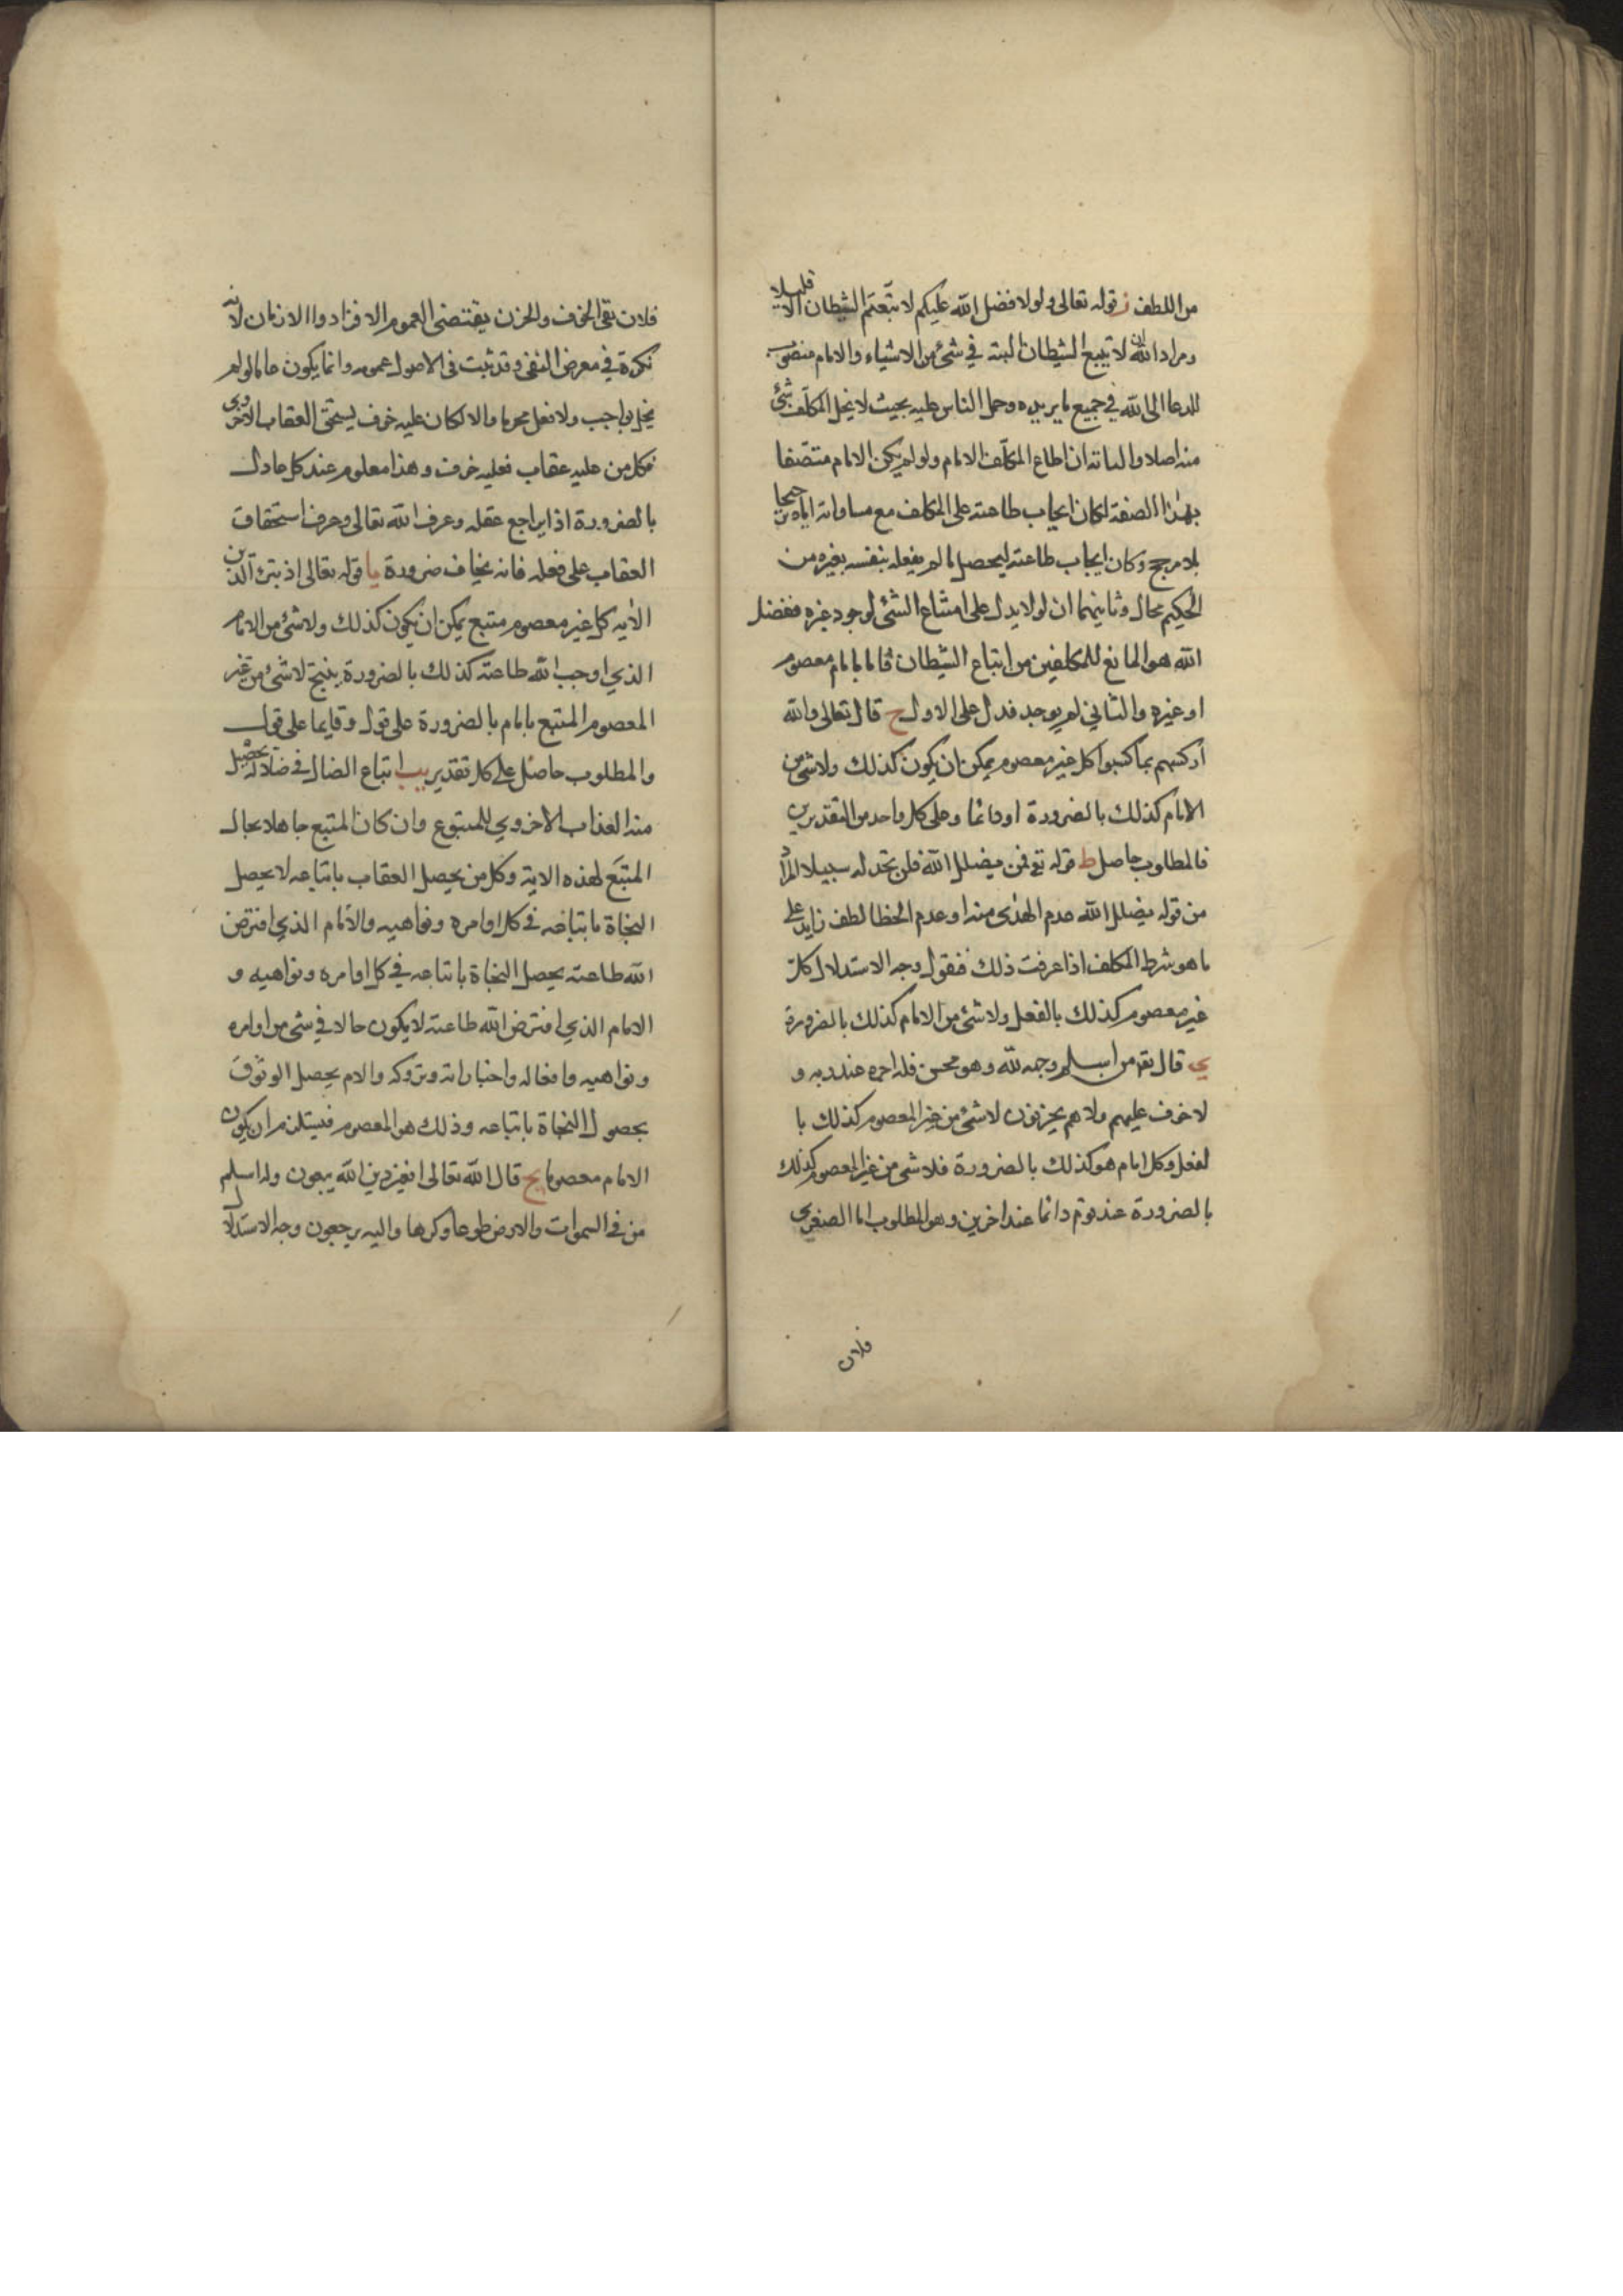 من اللطف ز قوله تعالى ولولا فضل الله عليكم لاتبعتم الشيطان الا قليلا
ومراد الله ان لا تتبع الشيطان البته في شئ من الاشياء والامام منصوب
للدعا الى الله في جميع ما يريده وحمل الناس عليه بحيث لا يخل المكلف بشئ
منه اصلا والبتة ان اطاع المكلف الامام ولو لم يكن الامام متصفا
بهذا الصفة لكان ايجاب طاعته على المكلف مع مساواته اياه ترجيحا
بلا مرجح وكان ايجاب طاعته ليحصل ما لم يفعله بنفسه بغيره من
الحكيم محال وثانيهما ان لولا يدل على امتناع الشئ لوجود غيره ففضل
الله هو المانع للمكلفين من اتباع الشيطان فاما بامام معصوم
او غيره والثاني لم يوجد فدل على الاول ح قال تعالى والله
اركسهم بما كسبوا كل غير معصوم يمكن ان يكون كذلك ولا شئ من
الامام كذلك بالضرورة او دائما وعلى كل واحد من التقديرين
فالمطلوب حاصل ط قوله تع فمن يضلل الله فلن تجد له سبيلا المراد
من قوله يضلل الله عدم الهدى منه او عدم الحظا لطف زايد على
ما هو شرط المكلف اذا عرفت ذلك فنقول وجه الاستدلال كل
غير معصوم كذلك بالفعل ولا شئ من الامام كذلك بالضرورة
ي قال تع من اسلم وجهه لله وهو محسن فله اجره عند ربه و
لا خوف عليهم ولا هم يحزنون لا شئ من غير المعصوم كذلك با
لفعل وكل امام هو كذلك بالضرورة فلا شئ من غير المعصوم كذلك
بالضرورة عند قوم دائما عند اخرين وهو المطلوب اما الصغرى
فلان
فلان نفى الخوف والحزن يقتضى العموم الافراد والازمان لانه
نكرة في معرض النفى وقد ثبت في الاصول عمومه وانما يكون حاله لو لم
يخل بواجب ولا فعل محرما والا لكان عليه خوف يستحق العقاب الاخروى
فكل من عليه عقاب فعليه خوف وهذا معلوم عند كل عادل
بالضرورة اذا راجع عقله وعرف الله تعالى وعرف استحقاق
العقاب على فعله فانه يخاف ضرورة يا قوله تعالى اذ تبرء الذين
الايه كل غير معصوم متبع يمكن ان يكون كذلك ولا شئ من الامام
الذي اوجب الله طاعته كذلك بالضرورة ينتج لا شئ من غير
المعصوم المتبع بامام بالضرورة على قول ودايما على قول
والمطلوب حاصل على كل تقدير يب اتباع الضال في ضلاله يحصل
منه العذاب الاخروي للمتبوع وان كان المتبع جاهلا بحال
المتبَع لهذه الاية وكل من يحصل العقاب باتباعه لا يحصل
النجاة باتباعه في كل اوامره ونواهيه والامام الذي افترض
الله طاعته يحصل النجاة باتباعه في كل اوامره ونواهيه و
الامام الذي افترض الله طاعته لا يكون حالا في شئ من اوامره
ونواهيه وافعاله واخباراته وتروكه والا لم يحصل الوثوق
بحصول النجاة باتباعه وذلك هو المعصوم فيستلزم ان يكون
الامام معصوما يج قال الله تعالى افغير دين الله يبغون وله اسلم
من في السموات والارض طوعا وكرها واليه يرجعون وجه الاستدلال